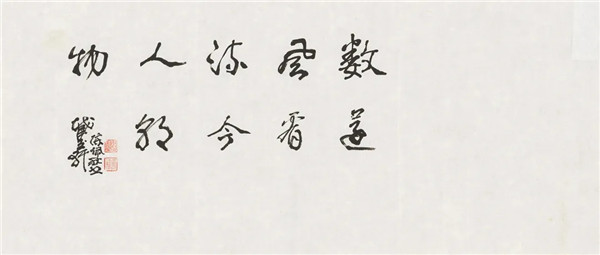 数風流人物
還看今朝